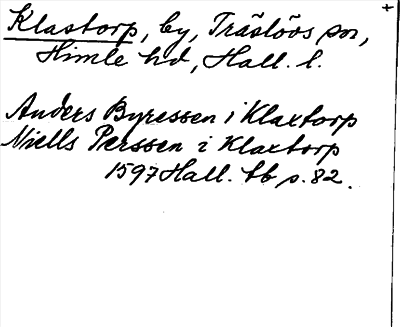 Klastorp, by, Träslövs sn,
Himle hd, Hall. l.
Anders Byressen i Klaxtorp
Niells Perssen i Klaxtorp
1597 Hall. tb s. 82.